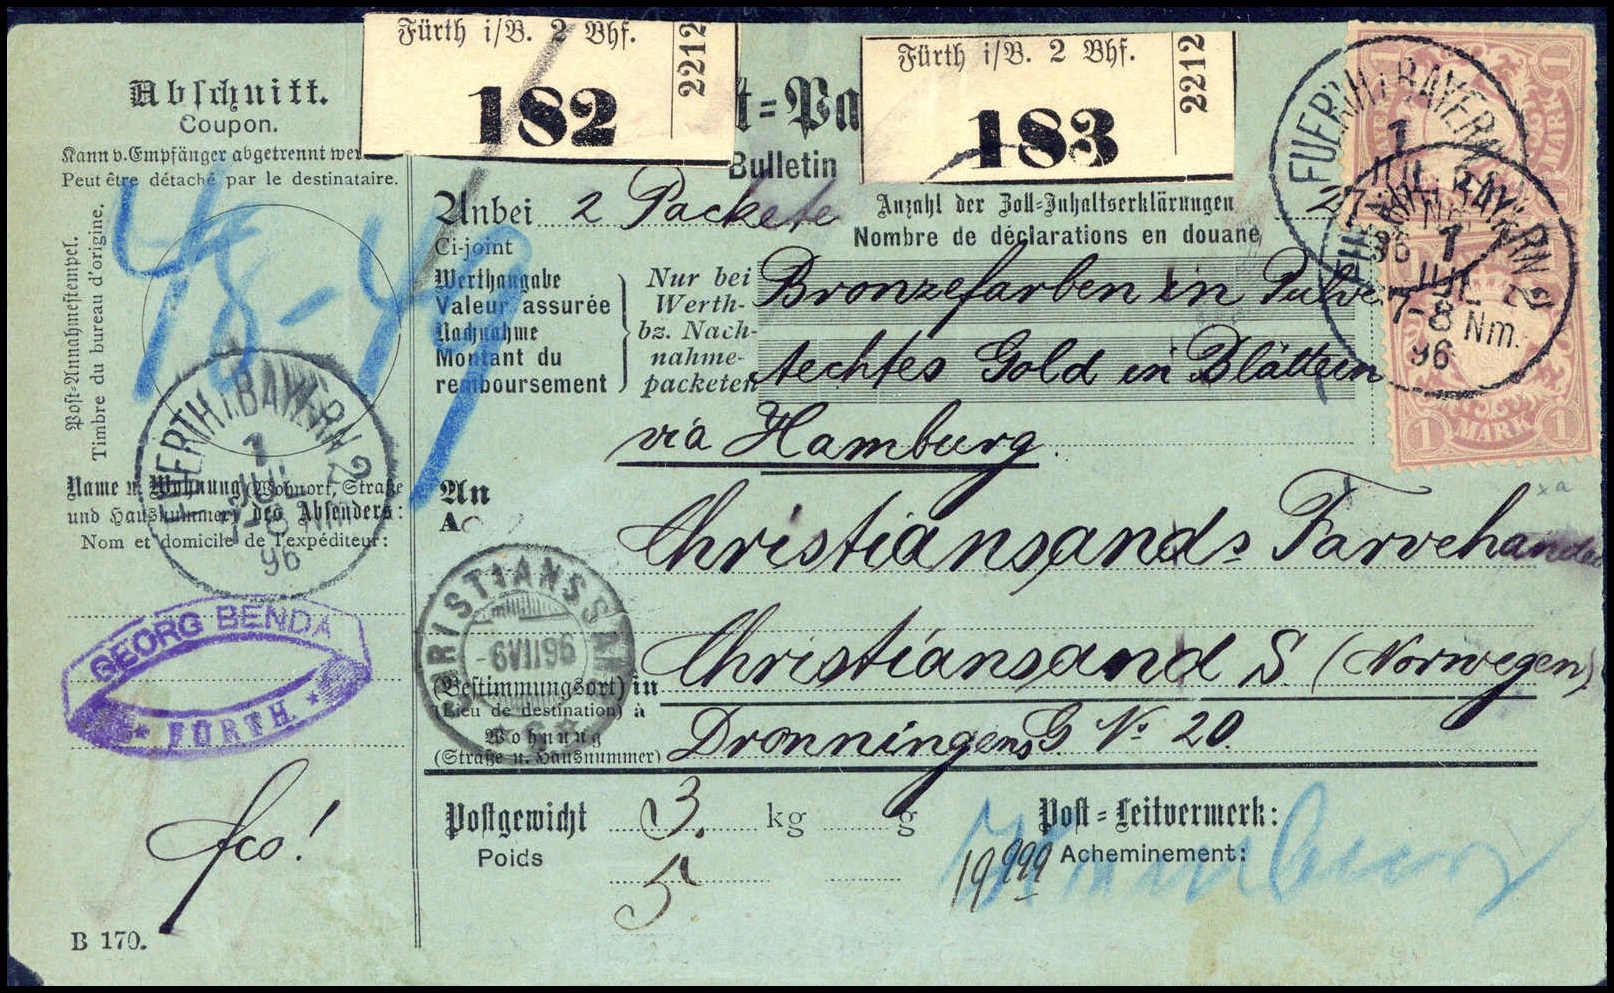 Fürth i/B. 2 Bhf.
182
2212
Fürth i/B. 2 Bhf.
183
2212
Abschnitt.
Coupon.
Kann v. Empfänger abgetrennt
Peut être détaché par le destinataire.
Post-Annahmestempel.
Timbre du bureau d'origine.
48-49
FUERTH i BAYERN 2
1
JUL
7-8 Nm.
96
Name u. Wohnung (Wohnort, Straße
und Hausnummer) des Absenders:
Nom et domicile de l'expéditeur:
GEORG BENDA
* FÜRTH. *
fco!
B 170.
Bulletin
Anbei 2 Packete
Ci-joint
Anzahl der Zoll-Inhaltserklärungen 2
Nombre de déclarations en douane
Werthangabe
Valeur assurée
Nachnahme
Montant du
remboursement
Nur bei
Werth-
bz. Nach-
nahme-
packeten
Bronzefarben in Pulver
echtes Gold in Blättern
via Hamburg.
An
A
Christiansands Farvehandel
CHRISTIANSSAND
6 VII 96
Christiansand S (Norwegen)
(Bestimmungsort) in
(Lieu de destination) à
Wohnung
(Straße u. Hausnummer)
Dronningens G No. 20.
Postgewicht 3. kg g
Poids
5
Post-Leitvermerk:
Acheminement:
FUERTH i BAYERN 2
1
JUL
7-8 Nm.
96
FUERTH i BAYERN 2
1
JUL
7-8 Nm.
96
BAYERN
1 MARK 1
1 MARK 1